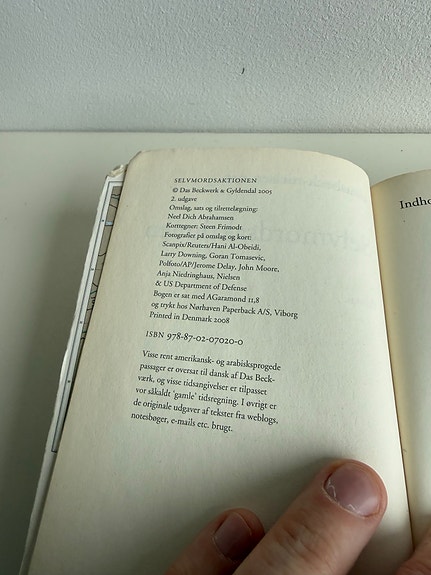 SELVMORDSAKTIONEN
© Das Beckwerk & Gyldendal 2005
2. udgave
Omslag, sats og tilrettelægning:
Neel Dich Abrahamsen
Korttegner: Steen Frimodt
Fotografier på omslag og kort:
Scanpix/Reuters/Hani Al-Obeidi,
Larry Downing, Goran Tomasevic,
Polfoto/AP/Jerome Delay, John Moore,
Anja Niedringhaus, Nielsen
& US Department of Defense
Bogen er sat med AGaramond 11,8
og trykt hos Nørhaven Paperback A/S, Viborg
Printed in Denmark 2008
ISBN 978-87-02-07020-0
Visse rent amerikansk- og arabisksprogede
passager er oversat til dansk af Das Beck-
værk, og visse tidsangivelser er tilpasset
vor såkaldt 'gamle' tidsregning. I øvrigt er
de originale udgaver af tekster fra weblogs,
notesbøger, e-mails etc. brugt.
Indho